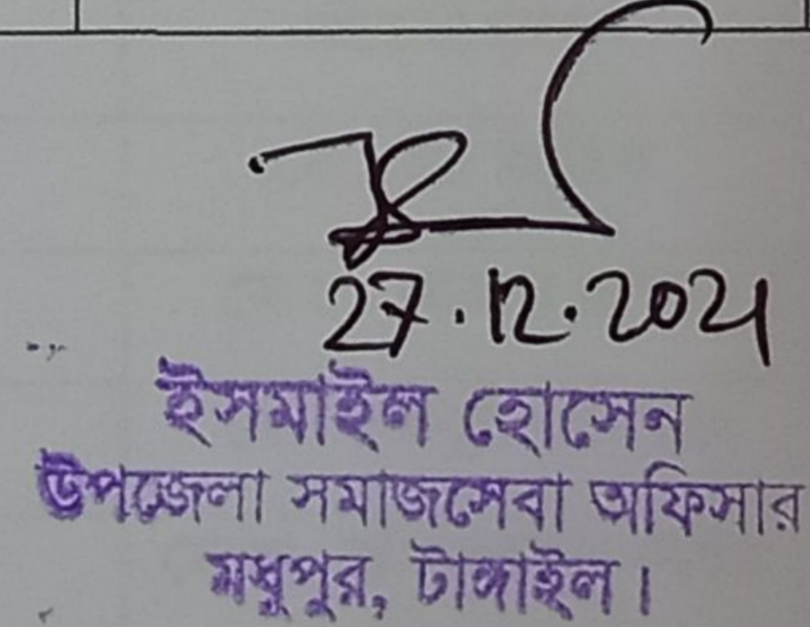 27.12.2021
ইসমাইল হোসেন
উপজেলা সমাজসেবা অফিসার
মধুপুর, টাঙ্গাইল।